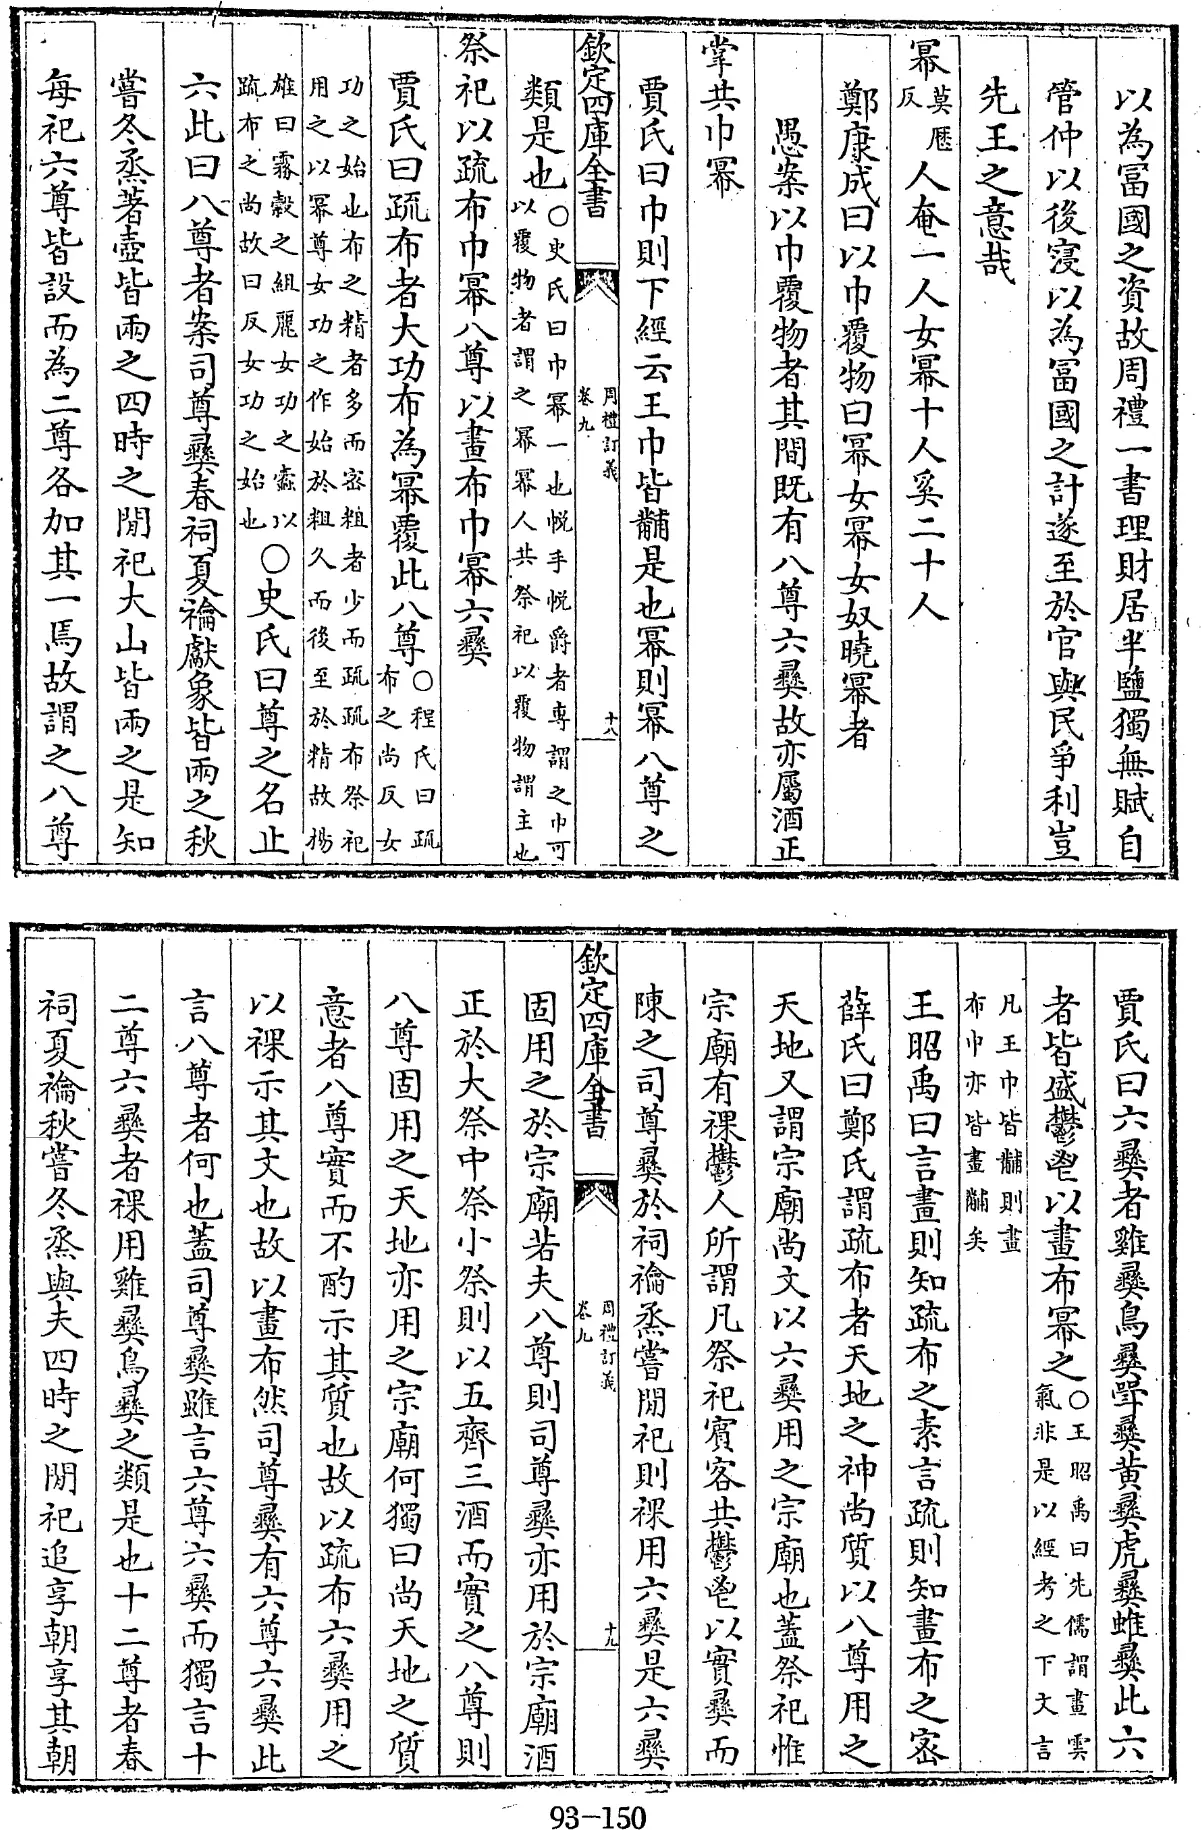 以為富國之資故周禮一書理財居半鹽獨無賦自
管仲以後寖以為富國之計遂至於官與民爭利豈
先王之意哉
冪莫歷反人奄一人女冪十人奚二十人
鄭康成曰以巾覆物曰冪女冪女奴曉冪者
愚案以巾覆物者其間既有八尊六彝故亦屬酒正
掌共巾冪
賈氏曰巾則下經云王巾皆黼是也冪則冪八尊之
欽定四庫全書
周禮訂義
卷九
十八
類是也○史氏曰巾冪一也帨手帨爵者專謂之巾可
以覆物者謂之冪冪人共祭祀以覆物謂主也
祭祀以疏布巾冪八尊以畫布巾冪六彝
賈氏曰疏布者大功布為冪覆此八尊○程氏曰疏
布之尚反女
功之始也布之精者多而密粗者少而疏疏布祭祀
用之以冪尊女功之作始於粗久而後至於精故揚
雄曰霧縠之組麗女功之蠧以
疏布之尚故曰反女功之始也○史氏曰尊之名止
六此曰八尊者案司尊彝春祠夏禴獻象皆兩之秋
嘗冬烝著壺皆兩之四時之閒祀大山皆兩之是知
每祀六尊皆設而為二尊各加其一焉故謂之八尊
賈氏曰六彝者雞彝鳥彝斝彝黄彝虎彝蜼彝此六
者皆盛鬱鬯以畫布冪之○王昭禹曰先儒謂畫雲
氣非是以經考之下文言
凡王巾皆黼則畫
布巾亦皆畫黼矣
王昭禹曰言畫則知疏布之素言疏則知畫布之密
薛氏曰鄭氏謂疏布者天地之神尚質以八尊用之
天地又謂宗廟尚文以六彝用之宗廟也蓋祭祀惟
宗廟有祼鬱人所謂凡祭祀賓客共鬱鬯以實彝而
陳之司尊彝於祠禴烝嘗閒祀則祼用六彝是六彝
欽定四庫全書
周禮訂義
卷九
十九
固用之於宗廟若夫八尊則司尊彝亦用於宗廟酒
正於大祭中祭小祭則以五齊三酒而實之八尊則
八尊固用之天地亦用之宗廟何獨曰尚天地之質
意者八尊實而不酌示其質也故以疏布六彝用之
以祼示其文也故以畫布然司尊彝有六尊六彝此
言八尊者何也蓋司尊彝雖言六尊六彝而獨言十
二尊六彝者祼用雞彝鳥彝之類是也十二尊者春
祠夏禴秋嘗冬烝與夫四時之閒祀追享朝享其朝
93-150